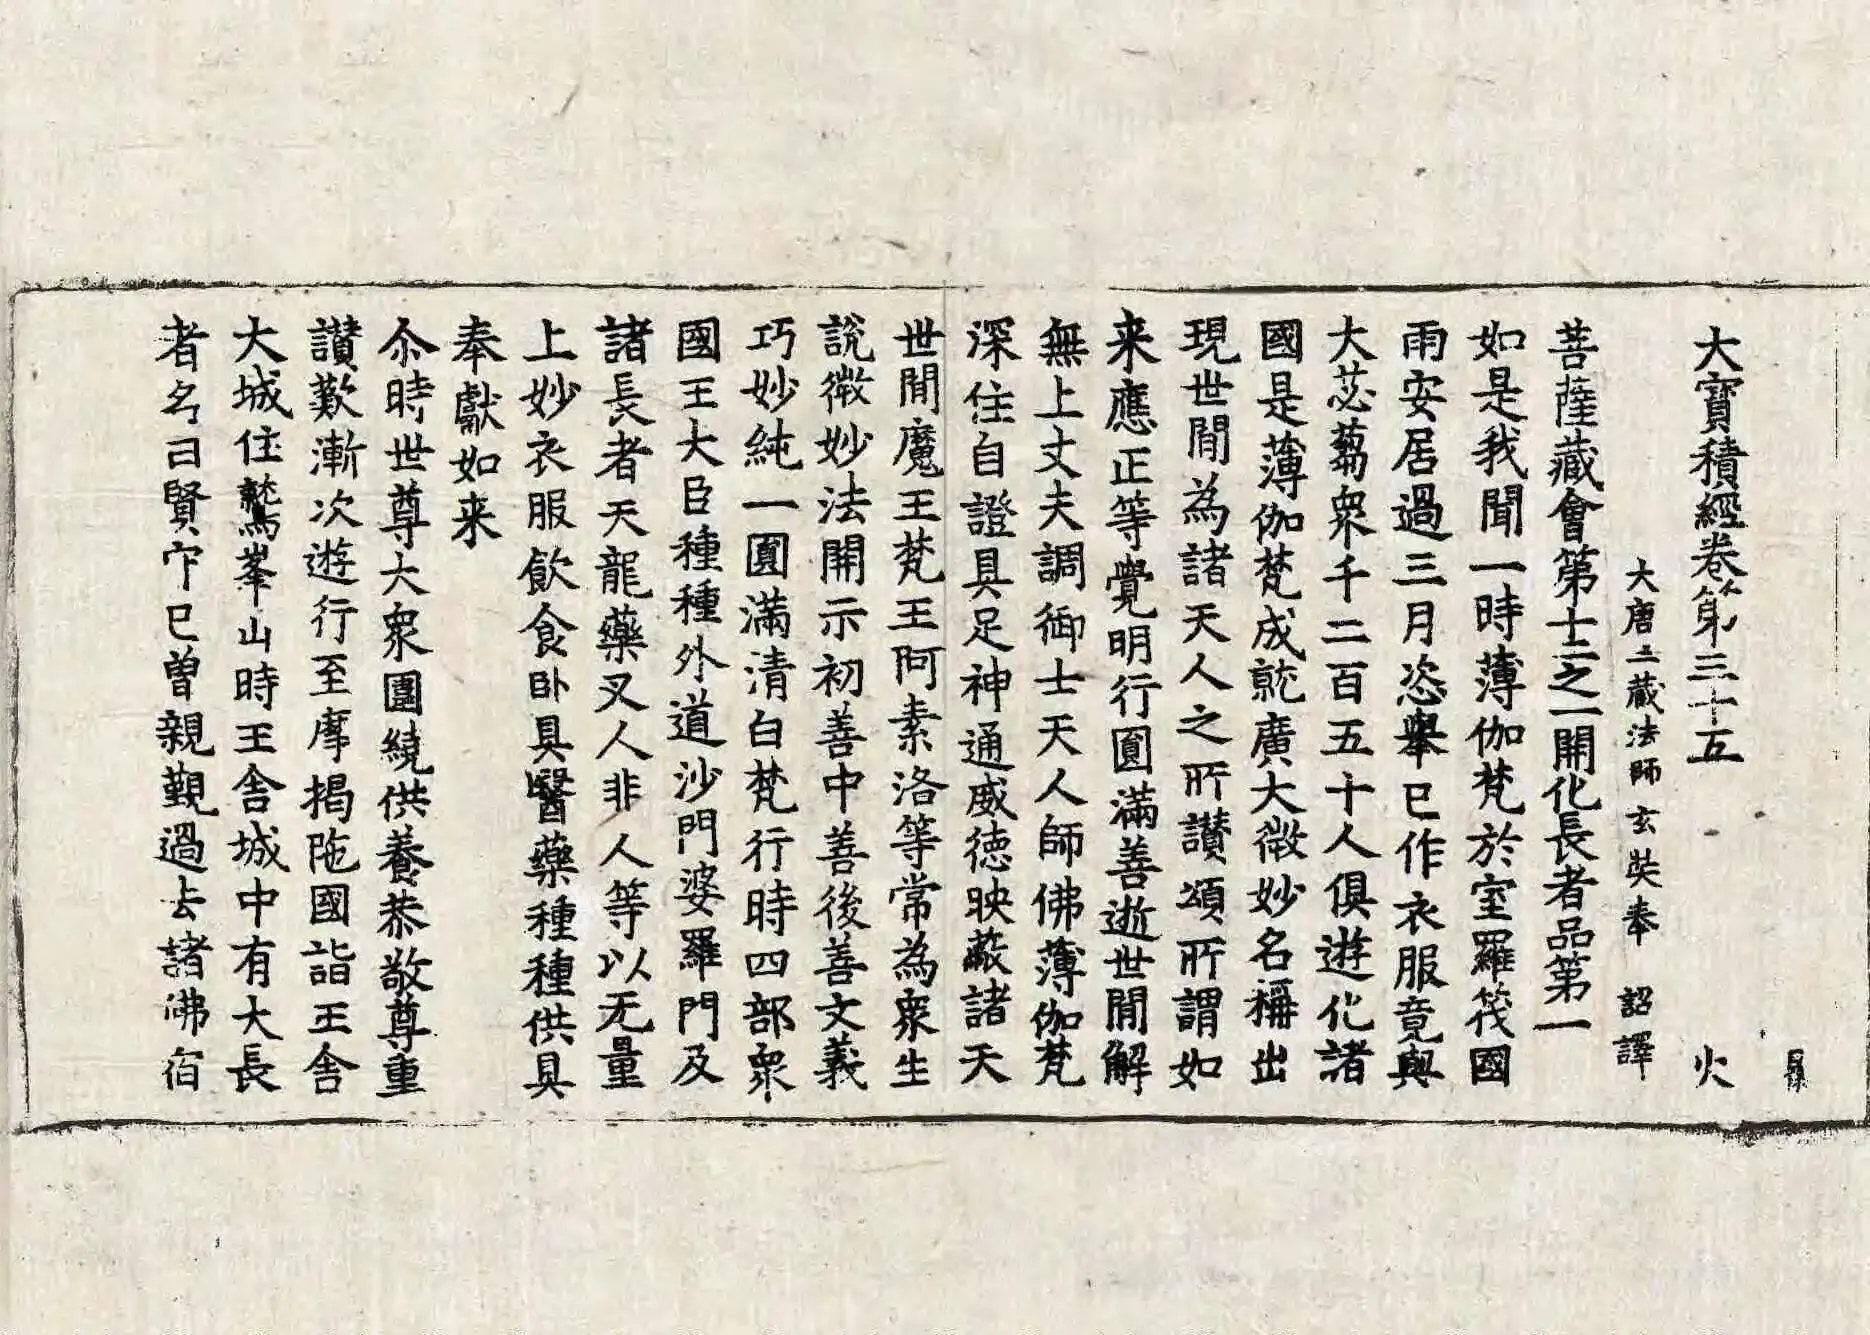 大寶積經卷第三十五 火
大唐三藏法師玄奘奉 詔譯
菩薩藏會第十二之一開化長者品第一
如是我聞一時薄伽梵於室羅筏國
雨安居過三月恣舉已作衣服竟與
大苾蒭衆千二百五十人俱遊化諸
國是薄伽梵成就廣大微妙名稱出
現世間為諸天人之所讃頌所謂如
来應正等覺明行圓滿善逝世間解
無上丈夫調御士天人師佛薄伽梵
深住自證具足神通威德映蔽諸天
世間魔王梵王阿素洛等常為衆生
說微妙法開示初善中善後善文義
巧妙純一圓滿清白梵行時四部衆
國王大臣種種外道沙門婆羅門及
諸長者天龍藥叉人非人等以无量
上妙衣服飲食卧具醫藥種種供具
奉獻如来
尒時世尊大衆圍繞供養恭敬尊重
讃歎漸次遊行至摩揭陁國詣王舎
大城住鷲峯山時王舎城中有大長
者名曰賢守已曽親覲過去諸佛宿